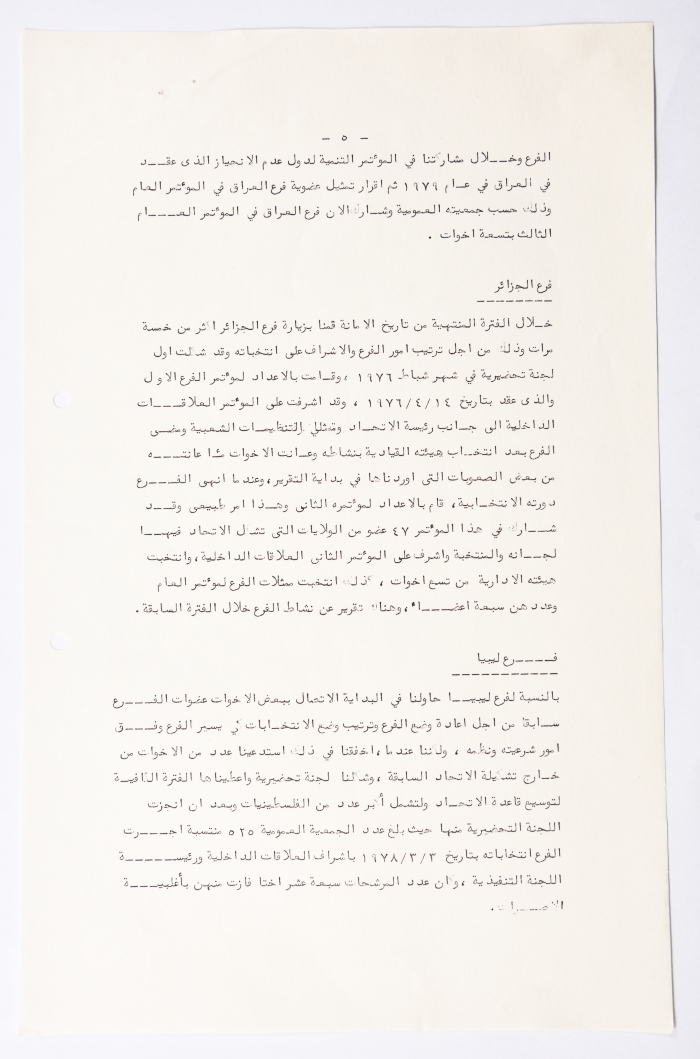 - ٥ -
الفرع وخـــلال مشاركتنا في المؤتمر التنمية لدول عدم الانحياز الذى عقـــد
في العراق في عـام ١٩٧٩ تم اقرار تمثيل عضوية فرع العراق في المؤتمر العام
وذلك حسب جمعيته العمومية وشارك الان فرع العراق في المؤتمر العـــام
الثالث بتسعة اخوات .
فرع الجزائر
خـلال الفترة المنتهية من تاريخ الامانة قمنا بزيارة فرع الجزائر اكثر من خمسة
مرات وذلك من اجل ترتيب امور الفرع والاشراف على انتخباته وقد شكلت اول
لجنة تحضيرية في شهر شباط ١٩٧٦ ، وقامت بالاعداد لمؤتمر الفرع الاول
والذى عقد بتاريخ ١٩٧٦/٤/١٤ ، وقد اشرفت على المؤتمر العلاقـــات
الداخلية الى جانب رئيسة الاتحاد وممثلي التنظيمات الشعبية ومضى
الفرع بعد انتخاب هيئته القيادية بنشاطه وعانت الاخوات مما عانتـــه
من بعض الصعوبات التى اوردناها في بداية التقرير ، وعندما انهى الفـــرع
دورته الانتخابية ، قام بالاعداد لمؤتمره الثانى وهـذا امر طبيعى وقـــد
شـــارك في هذا المؤتمر ٤٧ عضو من الولايات التى تشكل الاتحاد فيهـــا
لجـــانه والمنتخبة واشرف على المؤتمر الثانى العلاقات الداخلية ، وانتخبت
هيئته الادارية من تسع اخوات ، كذلك انتخبت ممثلات الفرع لمؤتمر العام
وعددهن سبعة اعضـــاء ، وهناك تقرير عن نشاط الفرع خلال الفترة السابقة .
فــــرع ليبيا
بالنسبة لفرع ليبيـــا حاولنا في البداية الاتصال ببعض الاخوات عضوات الفـــرع
سـابقا من اجل اعادة وضع الفرع وترتيب وضع الانتخابات كي يسير الفرع وفـــق
امور شرعيته ونظمه ، ولكننا عندما ، اخفقنا في ذلك استدعينا عدد من الاخوات من
خـارج تشكيلة الاتحاد السابقة ، وشكلنا لجنة تحضيرية واعطيناها الفترة الكافية
لتوسيع قاعدة الاتحـاد ولتشمل أكبر عدد من الفلسطينيات وبعد ان انجزت
اللجنة التحضيرية منها حيث بلغ عدد الجمعية العمومية ٥٢٥ منتسبة اجـــرت
الفرع انتخاباته بتاريخ ١٩٧٨/٣/٣ باشراف العلاقات الداخلية ورئيســـة
اللجنة التنفيذية ، وكان عدد المرشحات سبعة عشر اختا فازت منهن بأغلبيـــة
الاصـــوات .